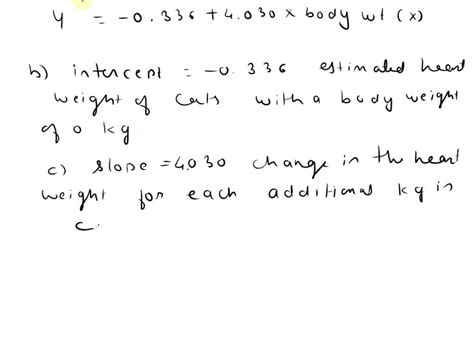 y = -0.336 + 4.030 x body wt (x)
b) intercept = -0.336 estimated heart
weight of cats with a body weight
of 0 kg
c) slope = 4.030 change in the heart
weight for each additional kg in
c